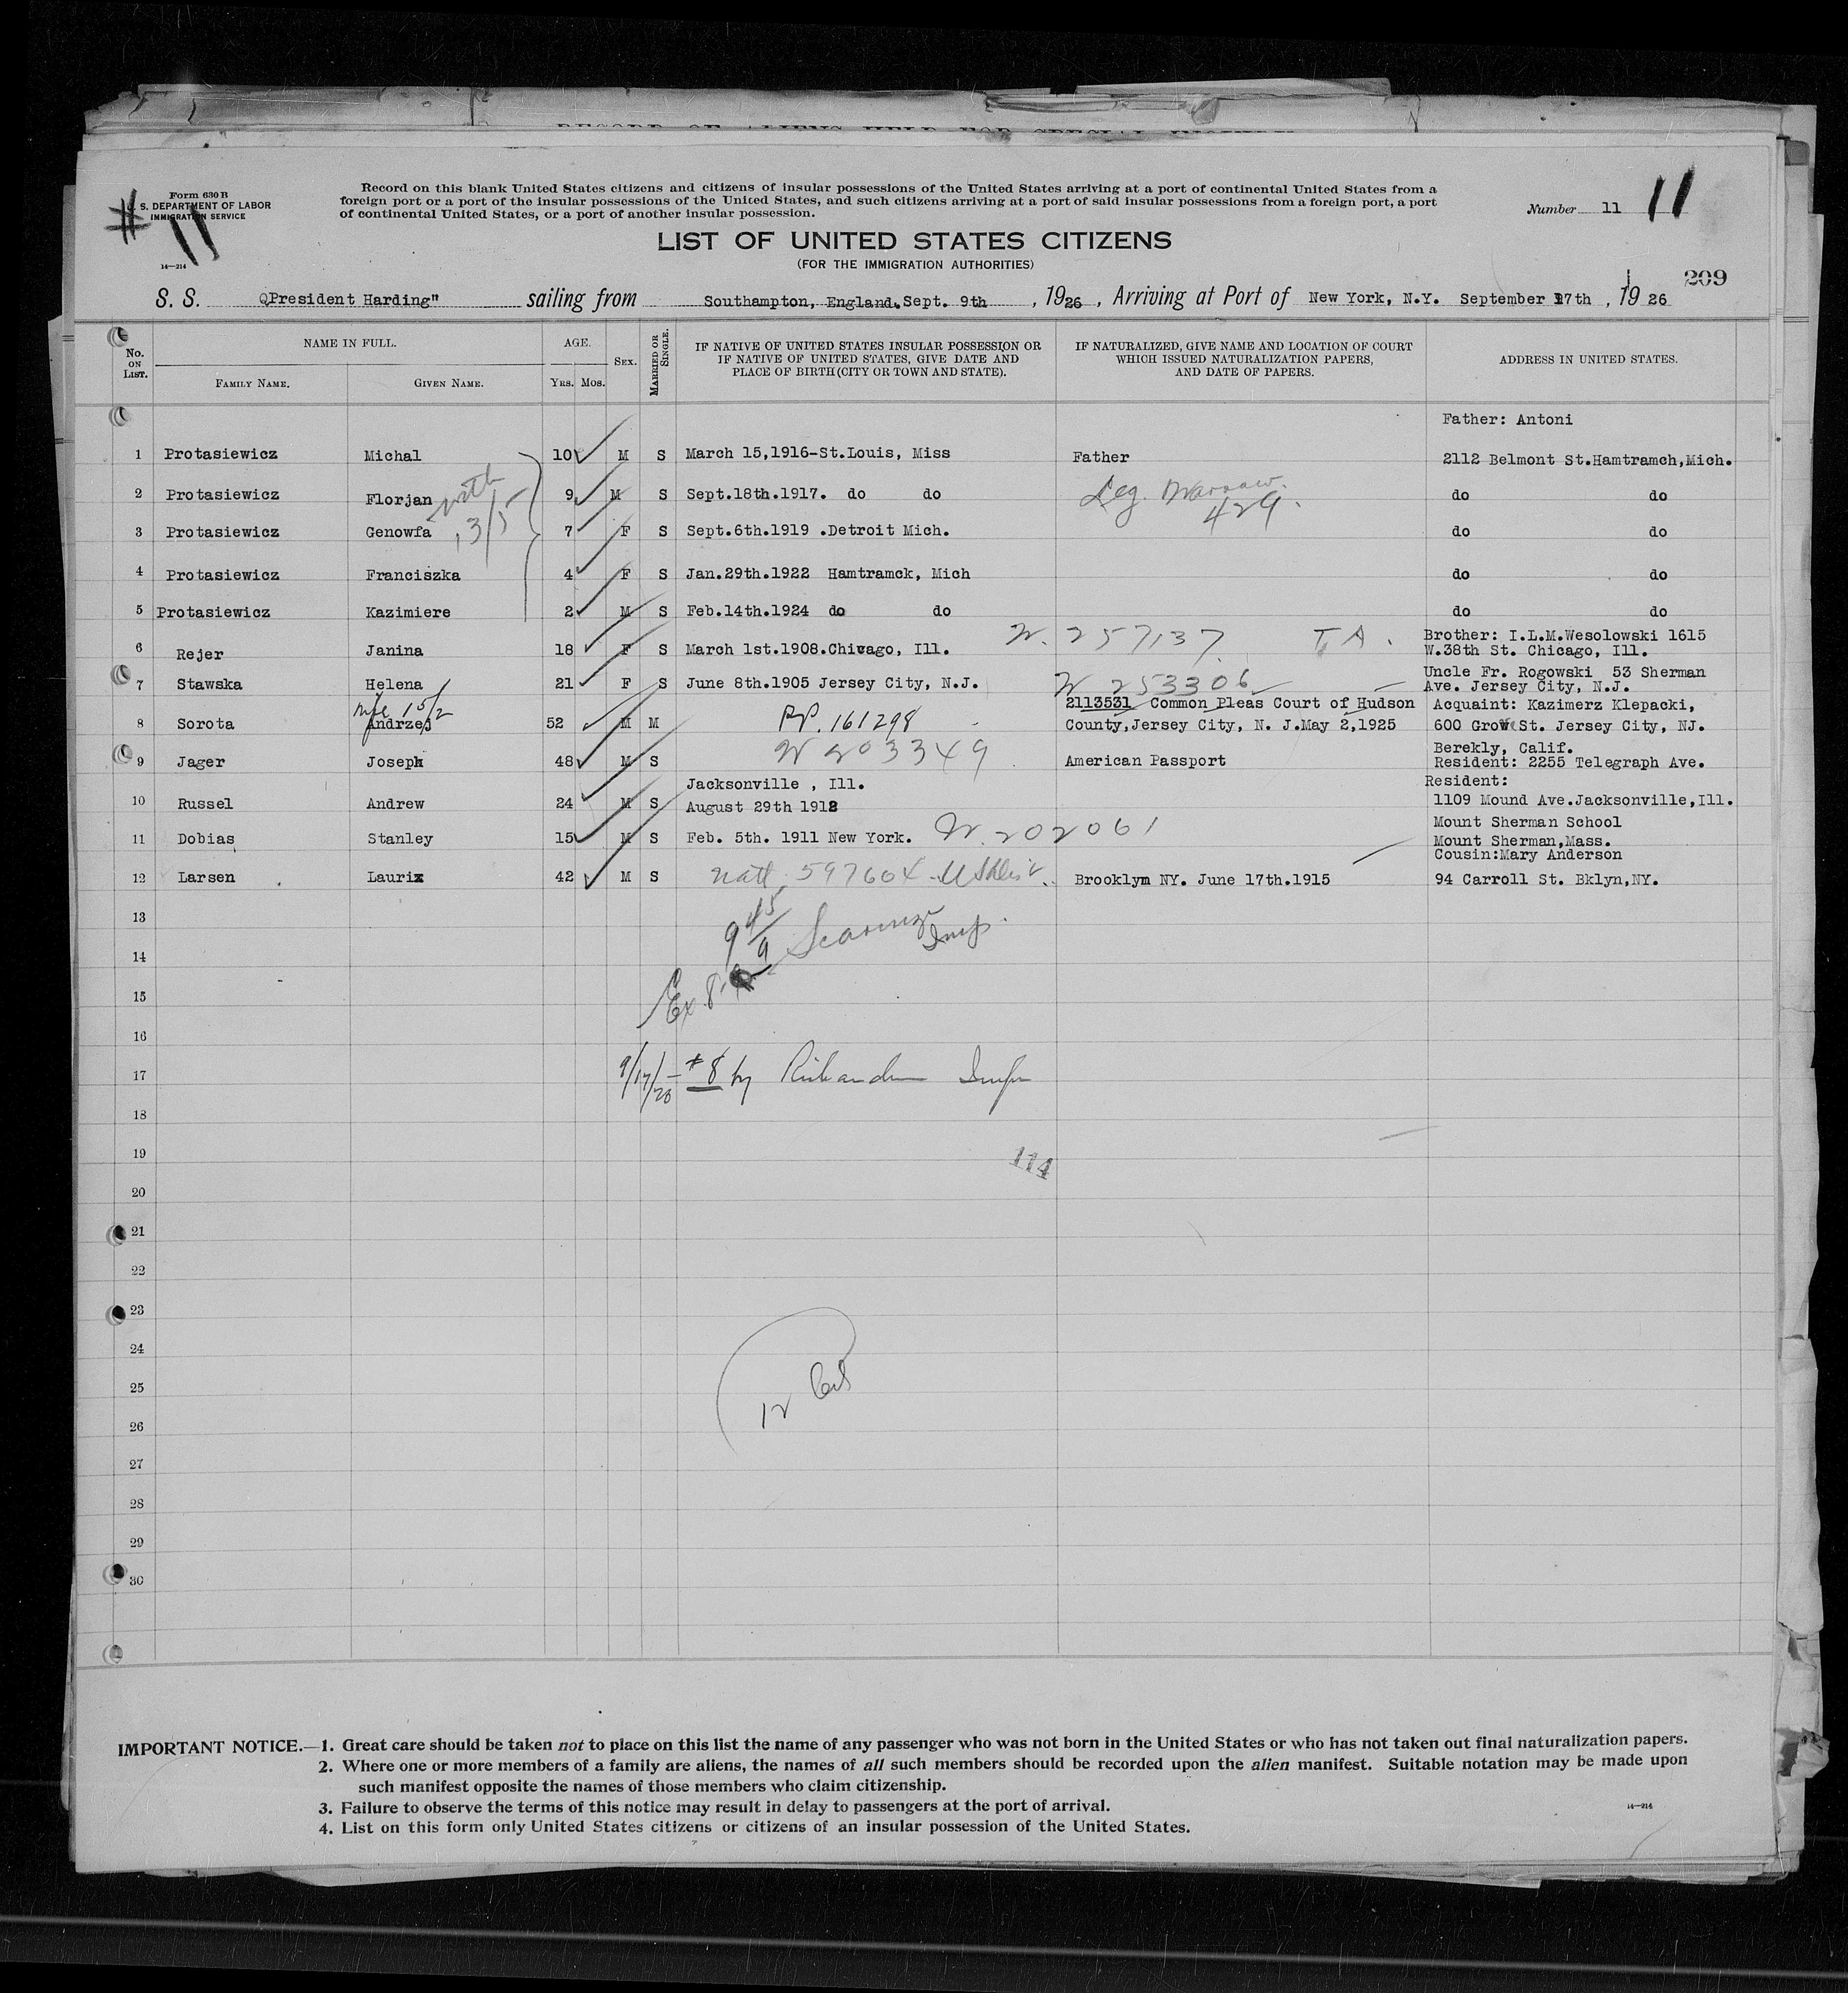 Form 630 B
U. S. DEPARTMENT OF LABOR
IMMIGRATION SERVICE
# 11
14—214
Record on this blank United States citizens and citizens of insular possessions of the United States arriving at a port of continental United States from a
foreign port or a port of the insular possessions of the United States, and such citizens arriving at a port of said insular possessions from a foreign port, a port
of continental United States, or a port of another insular possession.
Number 11 11
LIST OF UNITED STATES CITIZENS
(FOR THE IMMIGRATION AUTHORITIES)
209
S. S. QPresident Harding" sailing from Southampton, England, Sept. 9th , 1926 , Arriving at Port of New York, N.Y. September 17th , 1926
No. ON LIST. NAME IN FULL. FAMILY NAME. GIVEN NAME. AGE. YRS. MOS. SEX. MARRIED OR SINGLE. IF NATIVE OF UNITED STATES INSULAR POSSESSION OR IF NATIVE OF UNITED STATES, GIVE DATE AND PLACE OF BIRTH (CITY OR TOWN AND STATE). IF NATURALIZED, GIVE NAME AND LOCATION OF COURT WHICH ISSUED NATURALIZATION PAPERS, AND DATE OF PAPERS. ADDRESS IN UNITED STATES.
Father: Antoni
1 Protasiewicz Michal 10 M S March 15,1916-St.Louis, Miss Father 2112 Belmont St.Hamtramch,Mich.
2 Protasiewicz Florjan with 9 M S Sept.18th.1917. do do Leg. Warsaw. do do
3 Protasiewicz Genowfa 13/5 7 F S Sept.6th.1919 .Detroit Mich. 429. do do
4 Protasiewicz Franciszka 4 F S Jan.29th.1922 Hamtramck, Mich do do
5 Protasiewicz Kazimiere 2 M S Feb.14th.1924 do do do do
6 Rejer Janina 18 F S March 1st.1908.Chicago, Ill. W. 257137 T A. Brother: I.L.M.Wesolowski 1615
W.38th St. Chicago, Ill.
7 Stawska Helena 21 F S June 8th.1905 Jersey City, N.J. W 253306 Uncle Fr. Rogowski 53 Sherman
Ave. Jersey City, N.J.
wife 15/2 2113531 Common Pleas Court of Hudson Acquaint: Kazimerz Klepacki,
8 Sorota Andrzej 52 M M PP. 161298 County,Jersey City, N. J.May 2,1925 600 Grow St. Jersey City, NJ.
W 203349 Berekly, Calif.
9 Jager Joseph 48 M S American Passport Resident: 2255 Telegraph Ave.
Jacksonville , Ill. Resident:
10 Russel Andrew 24 M S August 29th 1912 1109 Mound Ave.Jacksonville,Ill.
Mount Sherman School
11 Dobias Stanley 15 M S Feb. 5th. 1911 New York. W. 202061 Mount Sherman,Mass.
Cousin:Mary Anderson
12 Larsen Lauriz 42 M S natl 597604 Brooklyn NY. June 17th.1915 94 Carroll St. Bklyn,NY.
13
9 45/9
Insp.
14
Ex 8
15
16
17 9/17/26 #8 by Insp
18
19
114
20
21
22
23
24
25
12
26
27
28
29
30
IMPORTANT NOTICE.—1. Great care should be taken not to place on this list the name of any passenger who was not born in the United States or who has not taken out final naturalization papers.
2. Where one or more members of a family are aliens, the names of all such members should be recorded upon the alien manifest. Suitable notation may be made upon
such manifest opposite the names of those members who claim citizenship.
3. Failure to observe the terms of this notice may result in delay to passengers at the port of arrival.
14—214
4. List on this form only United States citizens or citizens of an insular possession of the United States.